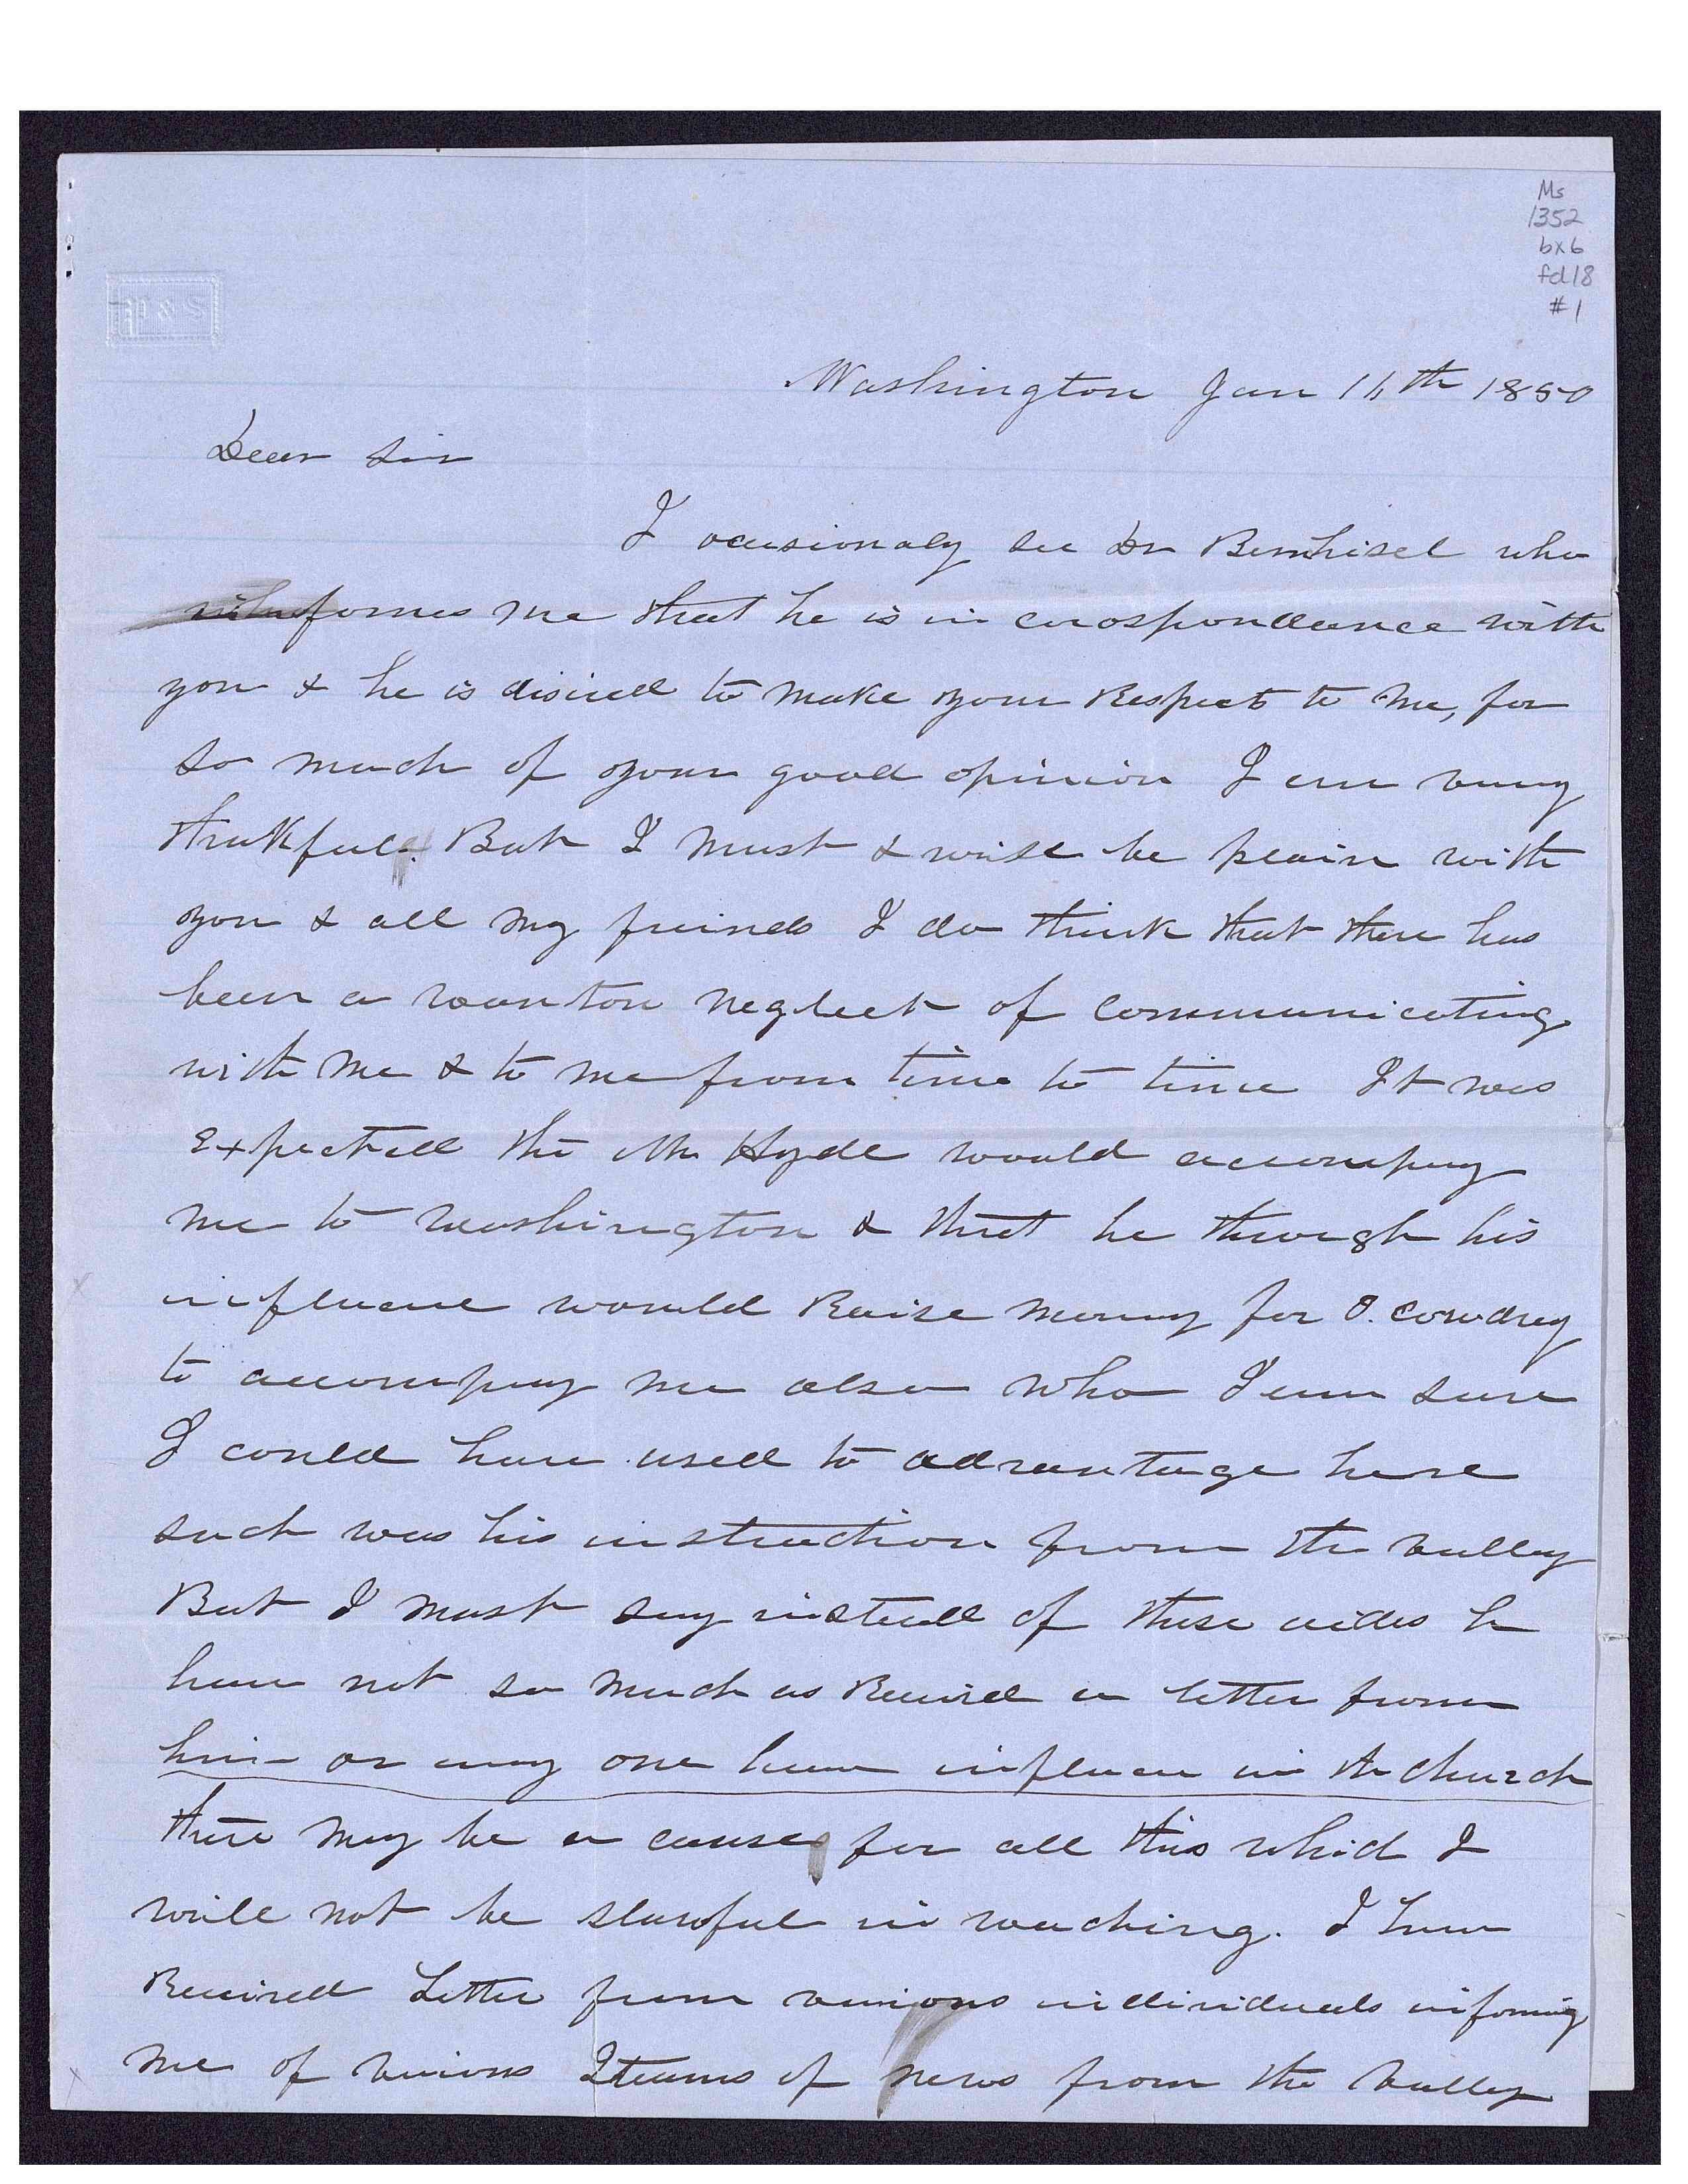 Ms
1352
bx6
fd18
#1
P & S
Washington Jan 11th 1850
Dear Sir
I ocusionaly see Dr Bernhisel who
informes me that he is in corospondance with
you & he is disired to make your Respects to me, for
so much of your good opinion I am very
thankfull. But I must & will be plain with
you & all my freinds I do think that there has
been a wanton neglect of communicating
with me & to me from time to time It was
Expected the Mr Hyde would accompany
me to Washington & that he through his
influence would Raise money for O. Cowdrey
to accompany me also who I am sure
I could have used to advantage here
such was his instruction from the valley
But I must say insted of these aides I
have not so much as Received a letter from
him or any one have influence in the church
there may be a cause for all this which I
will not be slawful in reaching. I have
Received Letter from various individuals informing
me of various Iteams of news from the valley